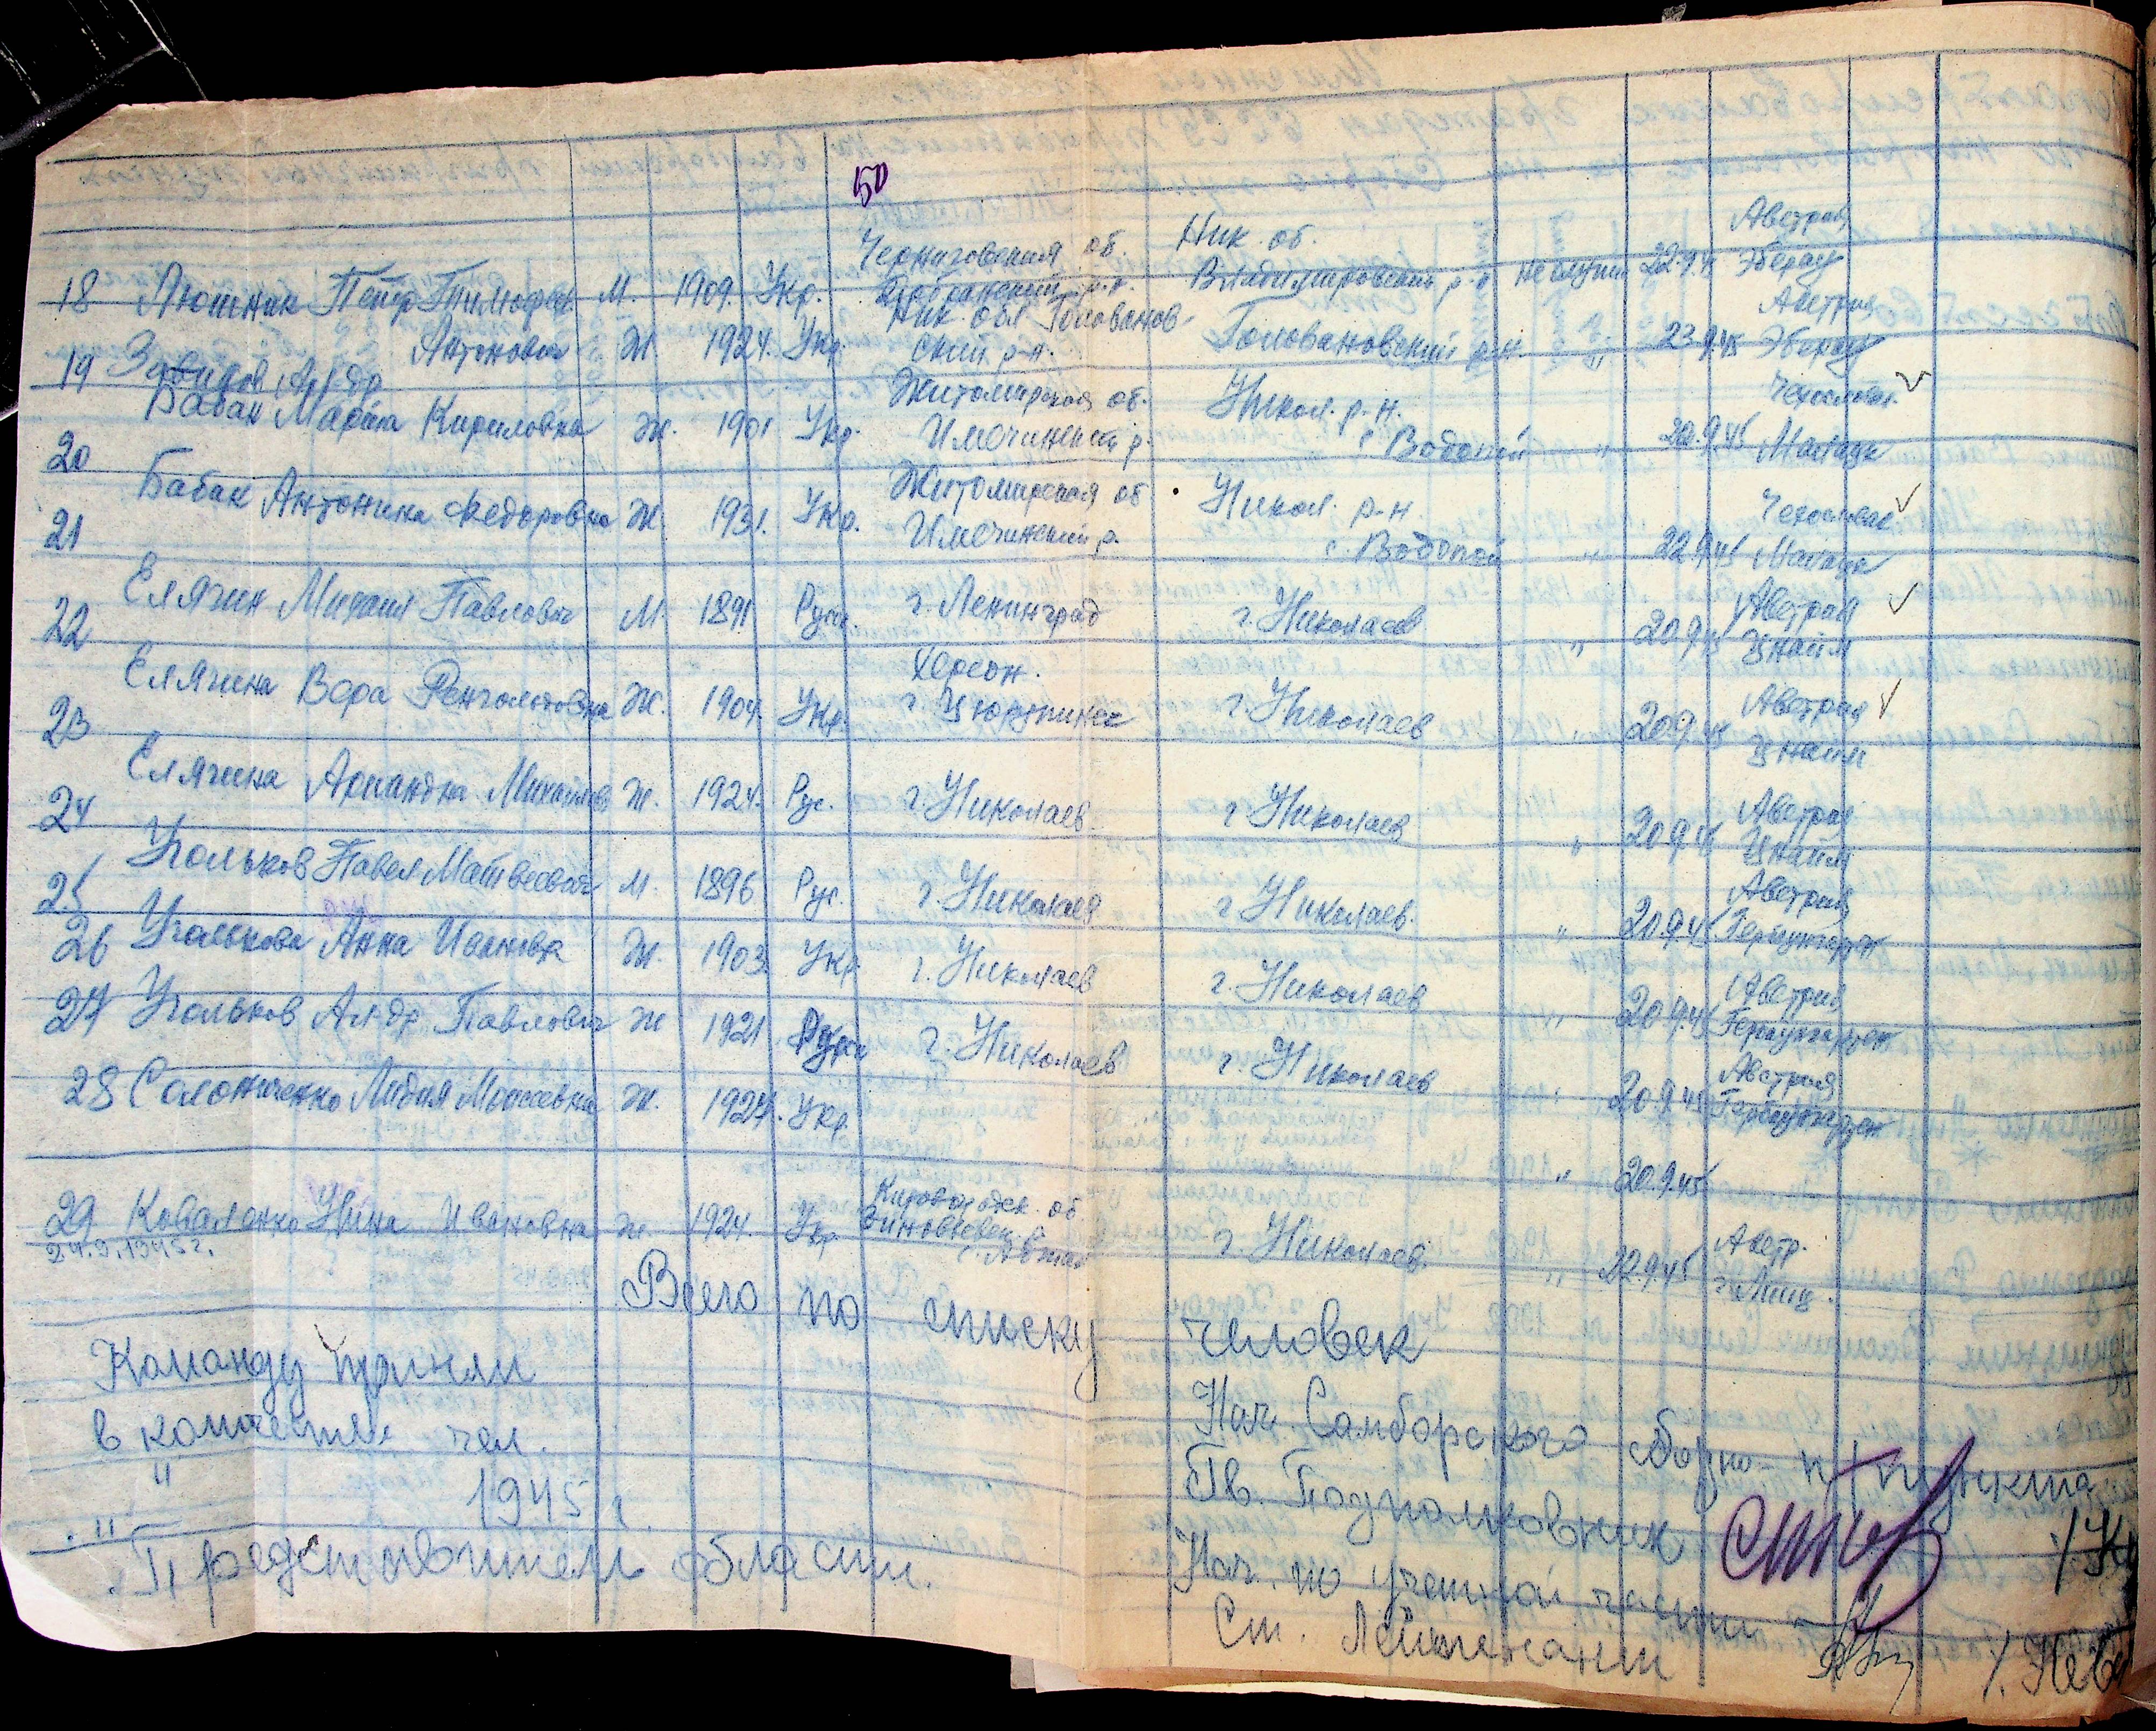 50
18 Лютник Петр Тимофее М. 1909. Укр. Черниговская об. р.н. Ник. об. Владимировский р.н не служил 22.9.45 Австрия Эберау
19 Завидов Ал-др Антонович Ж. 1924. Укр. Ник. обл Головановский р-н. Головановский р.н. " 23.9.45 Австрия Эберау
20 Бабак Мария Кириловна Ж. 1901 Укр. Житомирская об. Имечинский р. Никол. р.н. с Водопой " 22.9.45 Чехословак.
21 Бабак Антонина Федоровна Ж. 1931. Укр. Житомирская об Имечинский р. Никол. р-н. с. Водопой " 22.9.45 Чехословак.
22 Елягин Михаил Павлович М. 1891 Русс. г. Ленинград г. Николаев " 20.9.45 Австрия Цнайм
23 Елягина Вера Ж. 1904. Укр. Херсон. г. Цюрупинск г. Николаев " 20.9.45 Австрия Цнайм
24 Елягина Михайлов Ж. 1924. Рус. г. Николаев. г. Николаев " 20.9.45 Австрия Цнайм
25 Угольков Павел Матвеевич М. 1896 Рус. г. Николаев г. Николаев. " 20.9.45 Австрия
26 Уголькова Анна Ивановна Ж. 1903. Укр. г. Николаев г. Николаев " 20.9.45 Австрия
27 Угольков Ал-др Павлович Ж 1921 г. Николаев г. Николаев 20.9.45 Австрия
28 Солониченко Лидия Моисеевна Ж. 1924. Укр. " 20.9.45
29 Коваленко Нина Ивановна Ж. 1924. Укр Кировоградск. об. Зиновьевск. г. Николаев. " 22.9.45 Австр. г. Линц.
24.9.1945 г.
Всего по списку человек
Команду приняли
в количестве чел.
" " 1945 г.
Представители области.
Нач. Самборского сборно-п/пункта
Гв. Подполковник
Нач. по учетной части
Ст. Лейтенант